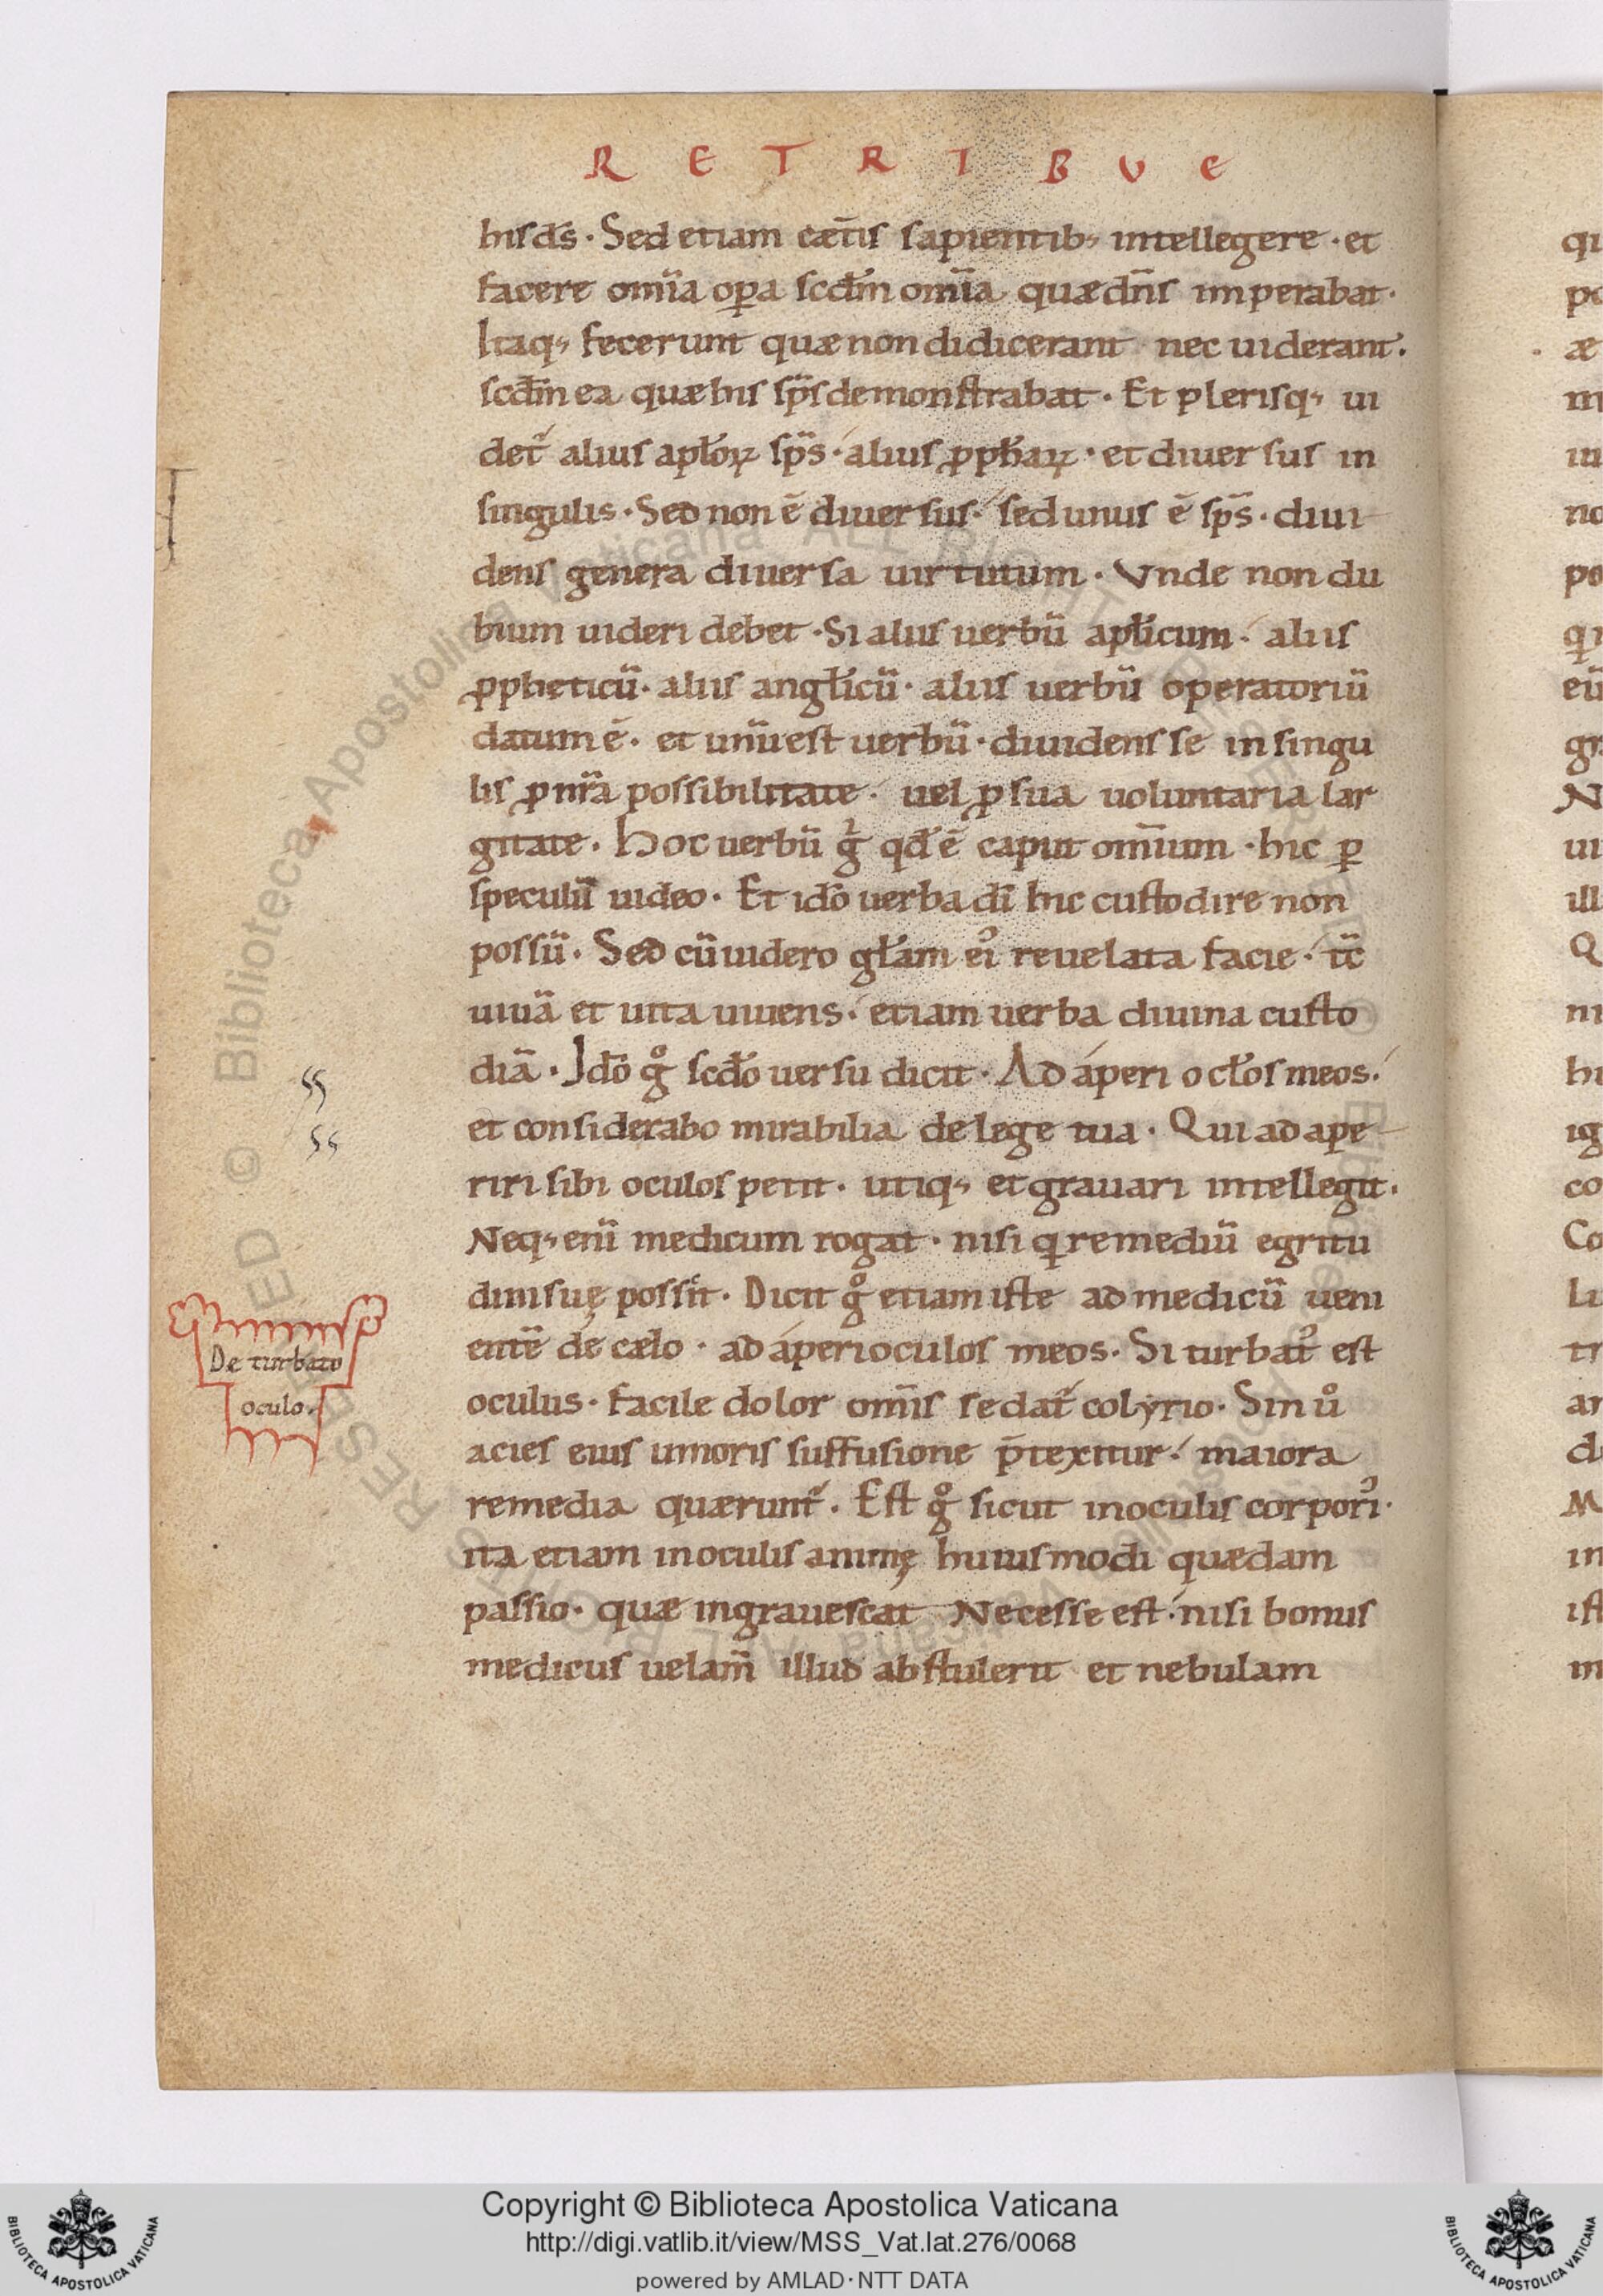 R E T R I B V E
hiſ dſ̄ · Sed etiam cæt̄iſ ſapientib; intellegere · et
facere om̄ia oꝑa ſcd̄m om̄ia quæ dn̄ſ imperabat ·
Itaq; fecerunt quæ non didicerant nec uiderant .
ſcd̄m ea quæ hiſ ſp̄ſ demonſtrabat · Et pleriſq; ui
det᷑ aliuſ apl̄oꝝ ſp̄s · aliuſ ꝓph̄aꝝ · et diuerſuſ in
ſinguliſ · Sed non ē diuerſuſ · ſed unuſ ē ſp̄s · diui-
denſ genera diuerſa uirtutum · Vnde non du
bium uideri debet · Si aliiſ uerbū apl̄icum · aliiſ
ꝓpheticū · aliiſ angl̄icū · aliiſ uerbū operatoriū
datum ē · et unū eſt uerbū · diuidenſ ſe in ſingu
liſ ꝓ nr̄a poſſibilitate · uel ꝓ ſua uoluntaria lar
gitate · Hoc uerbū gͥ qd̄ ē caput om̄ium · hic ꝑ
ſpeculū uideo · Et id̄o uerba dī hic cuſtodire non
poſſū · Sed cū uidero gl̄am ei᾽ reuelata facie · tc̄
uiuā et uita uiuenſ · etiam uerba diuina cuſto
diā · Id̄o gͦ ſcd̄o uerſu dicit · Ad áperi ocl̄oſ meoſ ·
et conſiderabo mirabilia de lege tua · Qui ad ape-
riri ſibi oculoſ petit · utiq; et grauari intellegit ·
Neq; enī medicum rogat · niſi q̣ remediū egritu
diniſ uę poſſit · Dicit gͦ etiam iſte ad medicū ueni
entē de cælo · ad áperi oculoſ meoſ · Si turbat᷑ eſt
oculuſ · facile dolor om̄iſ ſedat᷑ colyrio · Sin uͦ
acieſ eiuſ umoriſ ſuffuſione p̄texitur · maiora
remedia quærunt᷑ · Eſt gͦ ſicut in oculiſ corpori᾽ ·
ita etiam in oculiſ animę huiuſmodi quædam
paſſio · quæ ingraueſcat Neceſſe eſt · niſi bonuſ
medicuſ uelam̄ illud abſtulerit et nebulam
De turbato
oculo .
Copyright © Biblioteca Apostolica Vaticana
http://digi.vatlib.it/view/MSS_Vat.lat.276/0068
powered by AMLAD·NTT DATA
BIBLIOTECA APOSTOLICA VATICANA
BIBLIOTECA APOSTOLICA VATICANA